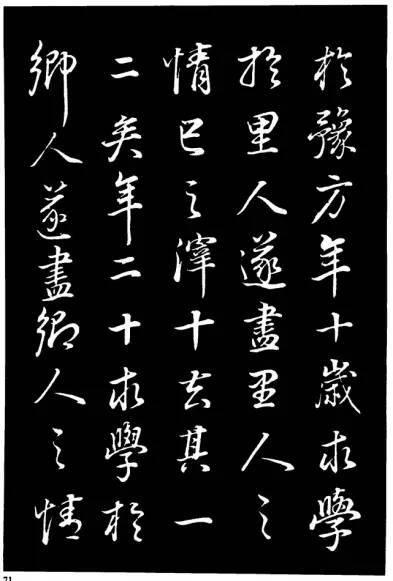 於豫方年十歲求學
於里人遂盡里人之
情己之滓十去其一
二矣年二十求學於
鄉人遂盡鄉人之情
71